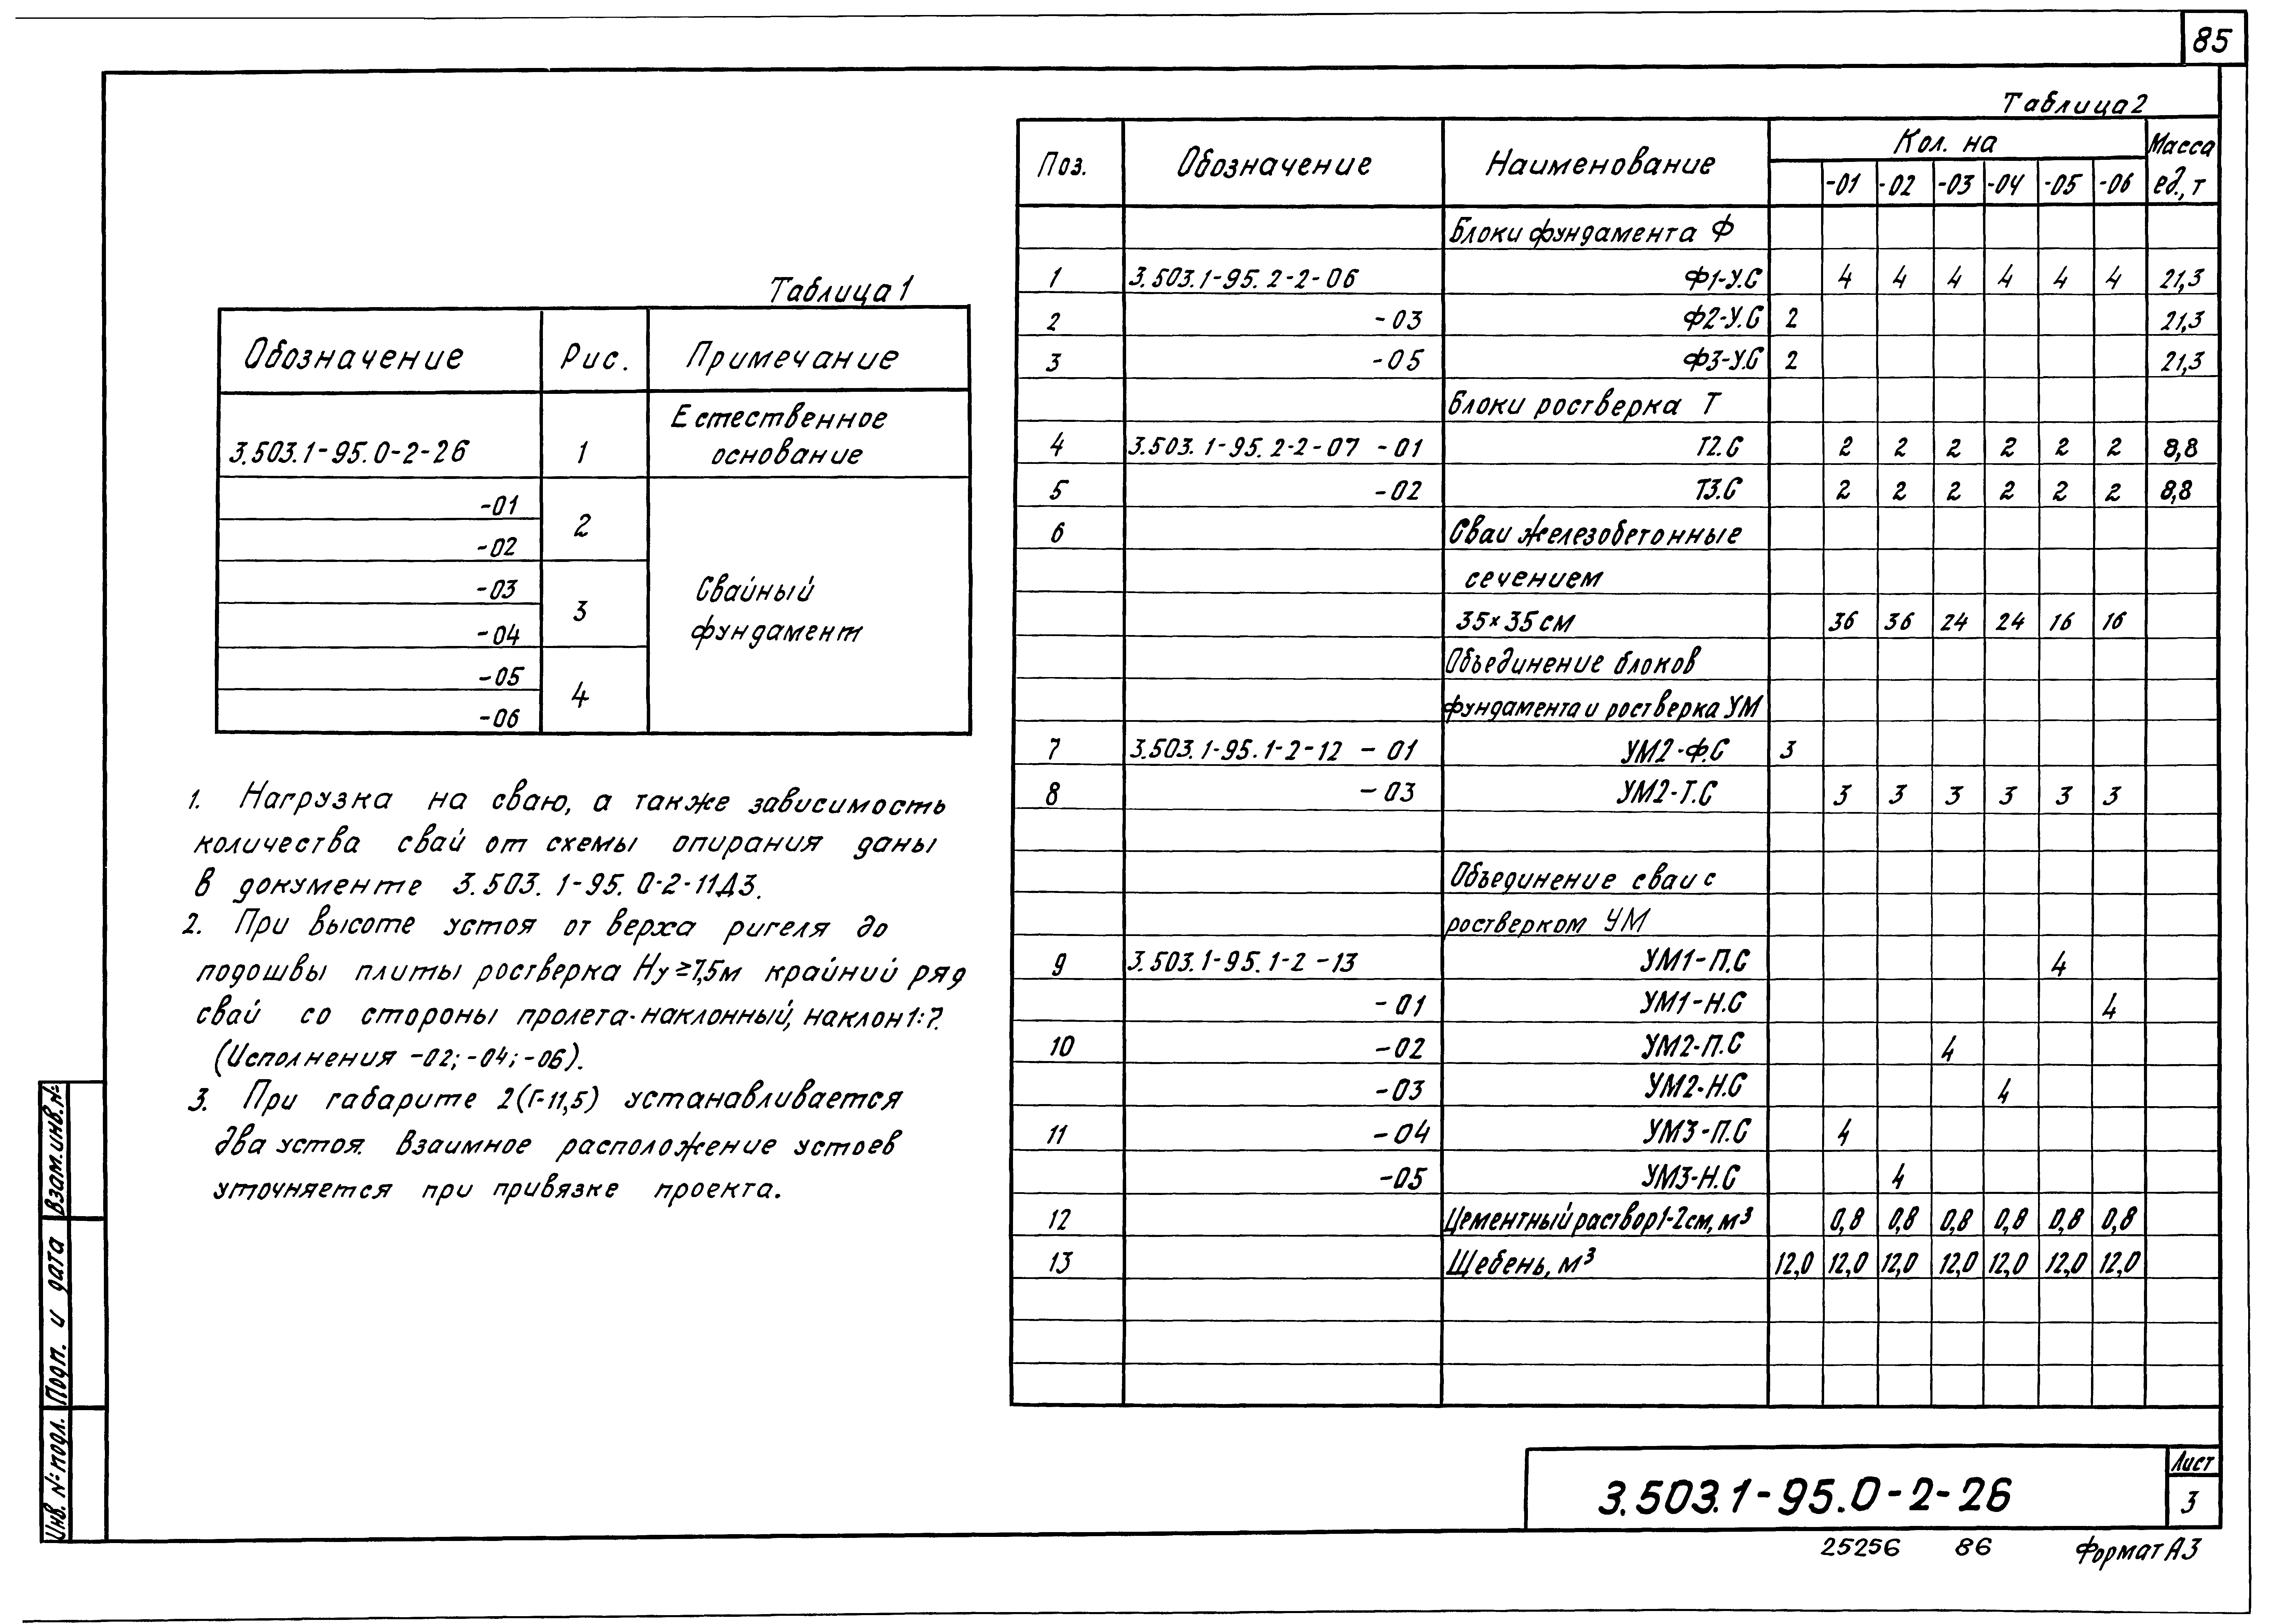 85
Таблица 1
Обозначение Рис. Примечание
3.503.1-95.0-2-26 1 Естественное
основание
-01 2
-02
-03 3 Свайный
фундамент
-04
-05 4
-06
1. Нагрузка на сваю, а также зависимость
количества свай от схемы опирания даны
в документе 3.503.1-95.0-2-11Д3.
2. При высоте устоя от верха ригеля до
подошвы плиты ростверка Ну ≥7,5м крайний ряд
свай со стороны пролета-наклонный, наклон 1:7.
(Исполнения -02; -04; -06).
3. При габарите 2(Г-11,5) устанавливается
два устоя. Взаимное расположение устоев
уточняется при привязке проекта.
Таблица 2
Поз. Обозначение Наименование Кол. на Масса
ед., т
-01 -02 -03 -04 -05 -06
Блоки фундамента Ф
1 3.503.1-95.2-2-06 Ф1-У.С 4 4 4 4 4 4 21,3
2 -03 Ф2-У.С 2 21,3
3 -05 Ф3-У.С 2 21,3
Блоки ростверка Т
4 3.503.1-95.2-2-07 -01 Т2.С 2 2 2 2 2 2 8,8
5 -02 Т3.С 2 2 2 2 2 2 8,8
6 Сваи железобетонные
сечением
35×35 см 36 36 24 24 16 16
Объединение блоков
фундамента и ростверка УМ
7 3.503.1-95.1-2-12 -01 УМ2-Ф.С 3
8 -03 УМ2-Т.С 3 3 3 3 3 3
Объединение сваи с
ростверком УМ
9 3.503.1-95.1-2-13 УМ1-П.С 4
-01 УМ1-Н.С 4
10 -02 УМ2-П.С 4
-03 УМ2-Н.С 4
11 -04 УМ3-П.С 4
-05 УМ3-Н.С 4
12 Цементный раствор 1-2см, м³ 0,8 0,8 0,8 0,8 0,8 0,8
13 Щебень, м³ 12,0 12,0 12,0 12,0 12,0 12,0 12,0
Взам. инв. №
Подп. и дата
Инв. № подл.
3.503.1-95.0-2-26
Лист
3
25256 86 Формат А3